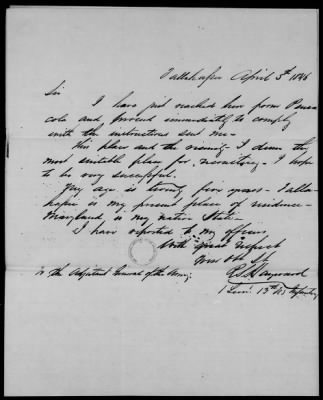 Tallahassee April 3d 1848
Sir
I have just reached here from Pensa
cola and proceed immediately to comply
with the instructions sent me—
This place and the vicinity I deem the
most suitable place for recruiting— I hope
to be very successful.
My age is twenty five years— Talla-
hassee is my present place of residence—
Maryland is my native State—
I have reported to my officers
With great respect
Your Obt St
Haywood
1 Lieut 13th US Infantry
To the Adjutant General of the Army